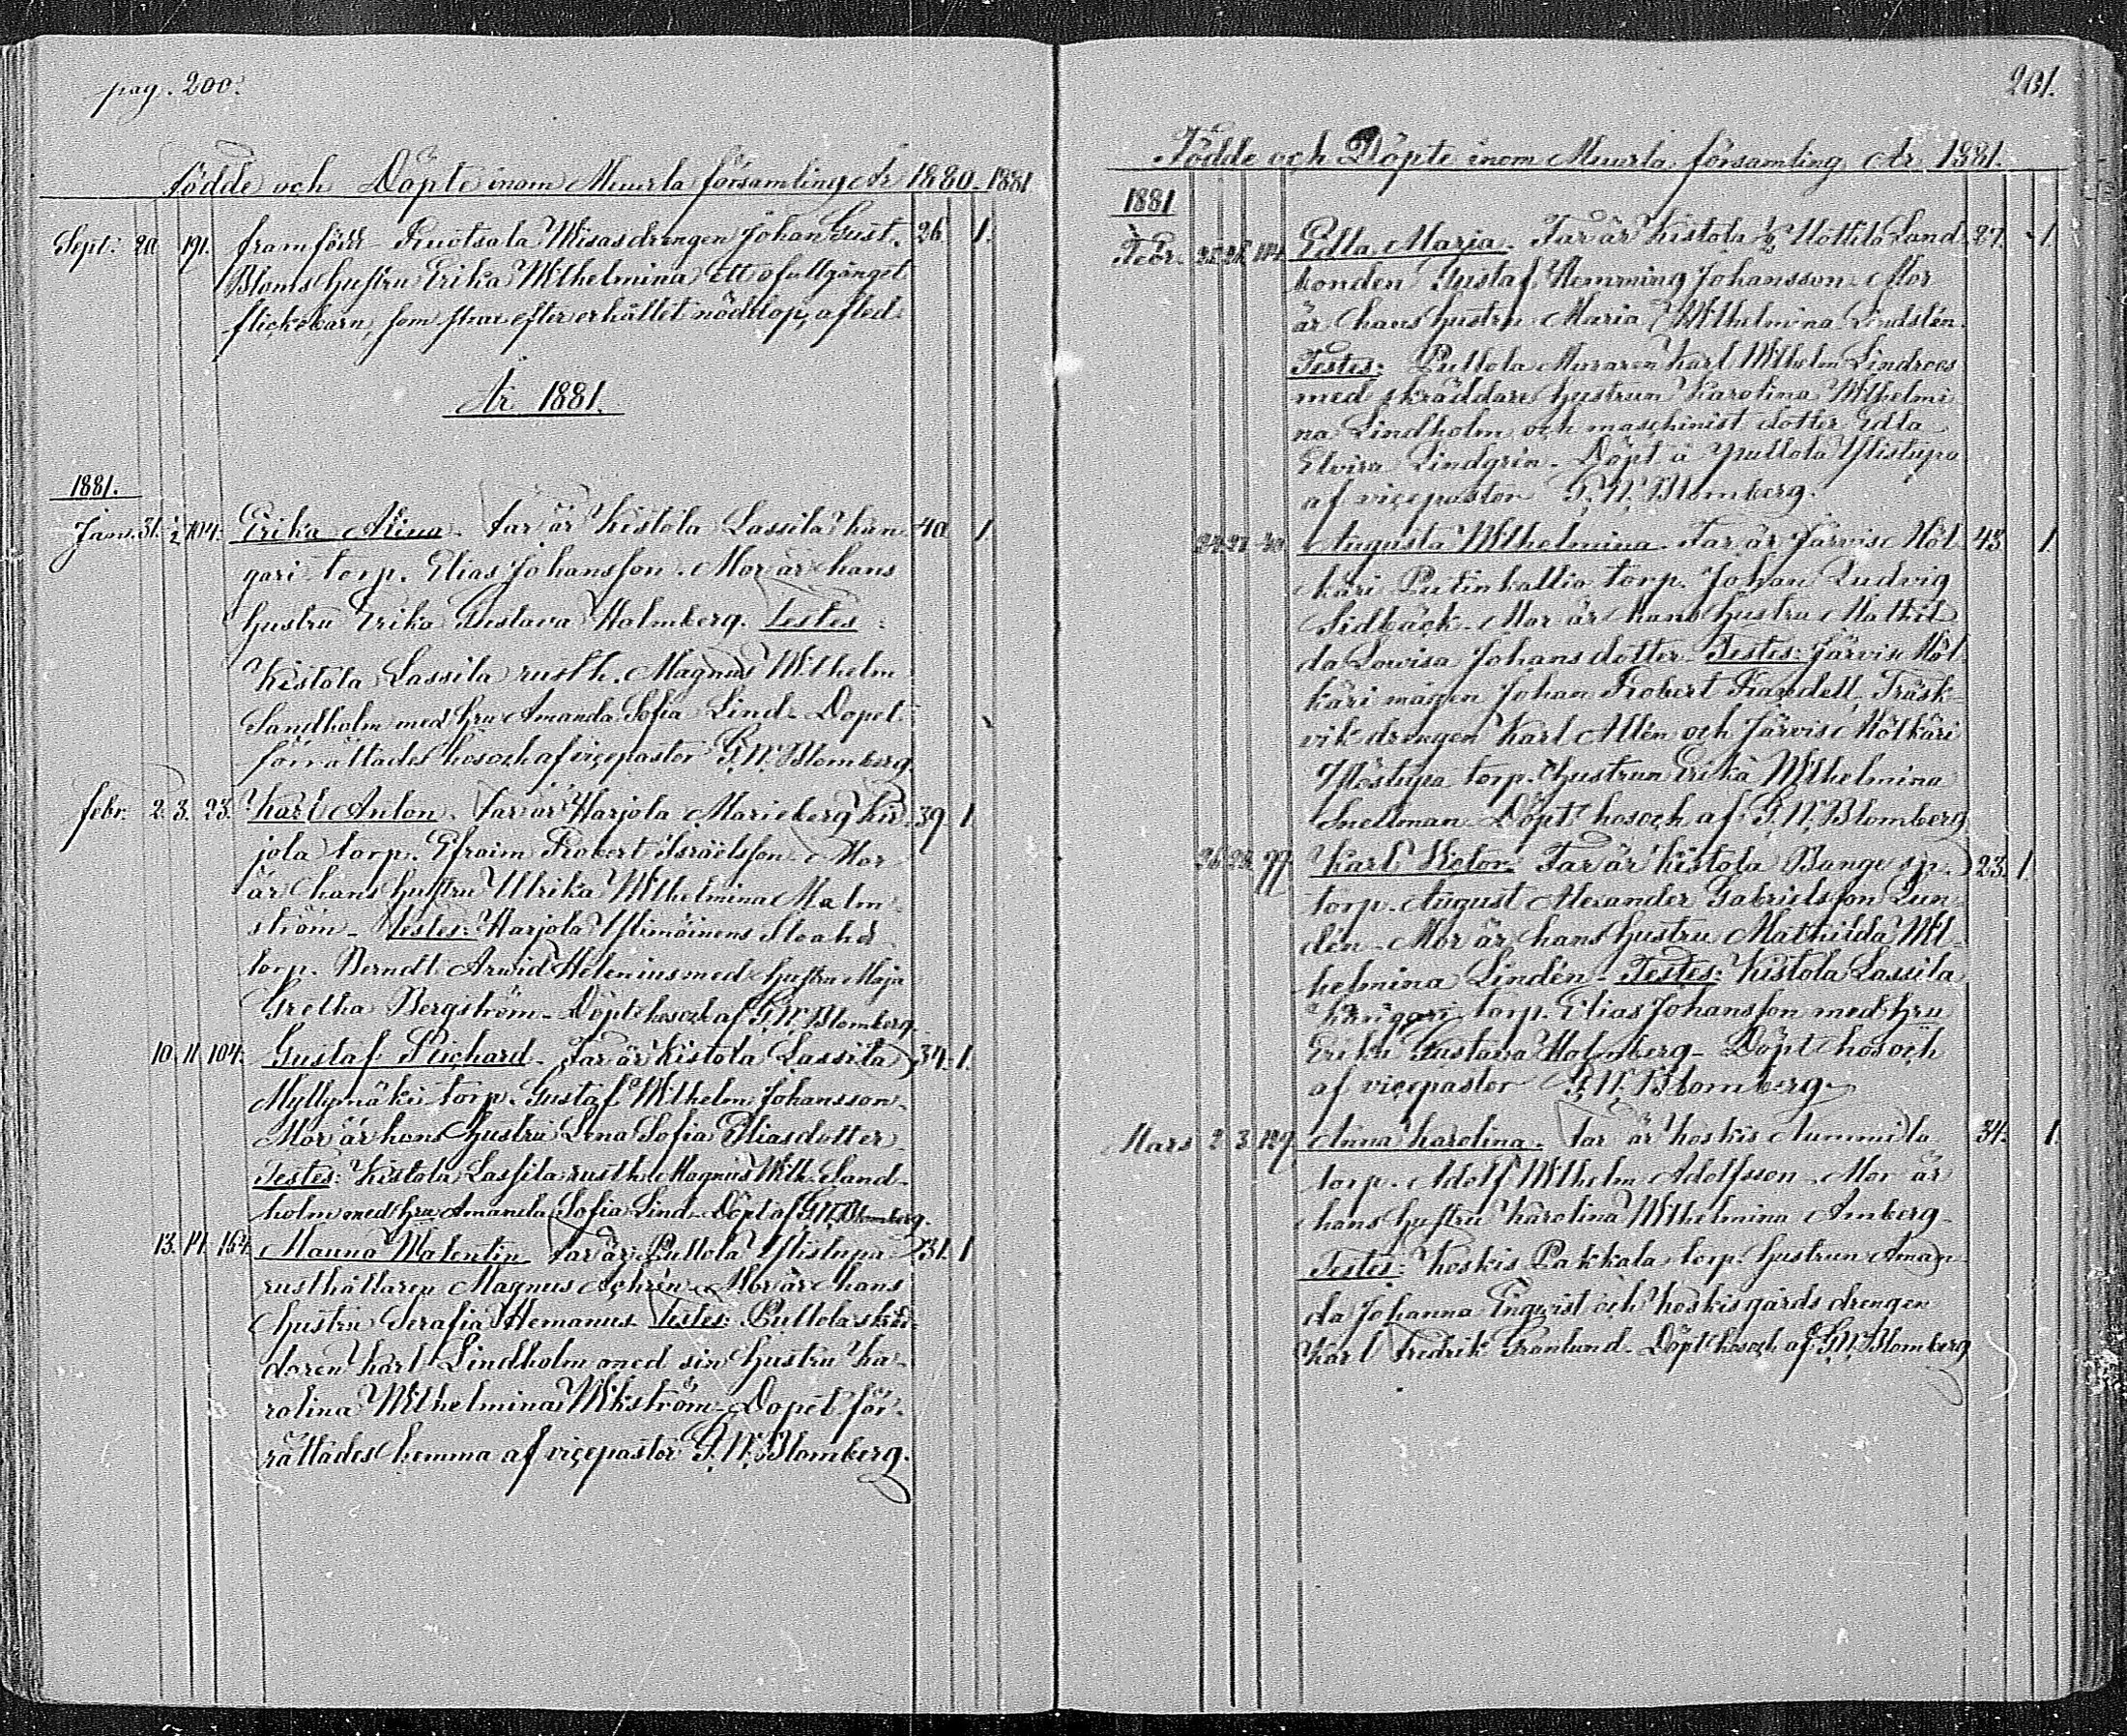 pag. 200.
Födde och Döpte inom Muurla församling År 1880-1881
Sept: 20 191. framfödde Ruotsala Wisas drengen Johan Gust. 26. 1.
Bloms hustru Erika Wilhelmina ett ofullgånget
flickebarn, som strax efter erhållet nöddop, afled.
År 1881.
1881.
Janu. 31. 1/2 104. Erika Alina. Far är Kistola Lassila Kan- 40. 1.
gari torp. Elias Johansson. Mor är hans
hustru Erika Gustava Holmberg. Testes:
Kistola Lassila rusth. Magnus Wilhelm
Sandholm med hru Amanda Sofia Lind. Dopet
förrättades hos och af vicepastor G. W. Blomberg.
febr. 2. 3. 23. Karl Anton. Far är Harjola Marieberg Kir- 39 1
jola torp. Efraim Robert Israelsson. Mor
är hans hustru Ulrika Wilhelmina Malm-
ström. Testes: Harjola
torp. Berndt Arvid Helenius med hustru Maja
Gretha Bergström. Döpt hos och af G. W. Blomberg.
10. 11. 104. Gustaf Richard. Far är Kistola Lassila 34. 1.
Myllymäki torp. Gustaf Wilhelm Johansson.
Mor är hans hustru Lena Sofia Eliasdotter
Testes: Kistola Lassila rusth. Magnus Wilh. Sand-
holm med hru Amanda Sofia Lind. Döpt af G. W. Blomberg.
13. 14. 154. Manna Walentin. Far är Pullola Ylistupa 31. 1
rusthållaren Magnus Achrén. Mor är hans
hustru Serafia Hemanus. Testes: Pullola skräd-
daren Karl Lindholm med sin hustru Ka-
rolina Wilhelmina Wikström. Dopet för-
rättades hemma af vicepastor G. W. Blomberg.
201.
Födde och Döpte inom Muurla församling År 1881.
1881
Febr. Edla Maria. Far är Kistola 1/2 Uottila Land- 27. 1.
bonden Gustaf Hemming Johansson. Mor
är hans hustru Maria Wilhelmina Lindstén.
Testes: Pullola Muraren Karl Wilhelm Lindroos
med skräddare hustrun Karolina Wilhelmi
na Lindholm och maschinist dotter Edla
Elvira Lindgrén. Döpt å Pullola Ylistupa
af vicepastor G. W. Blomberg.
24. 27. 40. Augusta Wilhelmina. Far är Järvis Höl 43. 1.
käri Putinkallio torp. Johan Ludvig
Sidbäck. Mor är hans hustru Mathil
da Lowisa Johansdotter. Testes: Järvis Höl
käri mågen Johan Robert Randell, Träsk-
vik drengen Karl Allén och Järvis Hölkäri
torp. hustrun Erika Wilhelmina
Snellman. Döpt hos och af G. W. Blomberg
26. 28. 97. Karl Victor. Far är Kistola Bange 23. 1.
torp. August Alexander Gabrielsson Lun-
dén. Mor är hans hustru Mathilda Wil-
helmina Lindén. Testes: Kistola Lassila
Kangari torp. Elias Johansson med hru
Erika Gustava Holmberg. Döpt hos och
af vicepastor G. W. Blomberg.
Mars 2. 3. 129. Anna Karolina. Far är Koskis Nummila 34. 1.
torp. Adolf Wilhelm Adolfsson. Mor är
hans hustru Karolina Wilhelmina Amberg.
Testes: Koskis Pakkala torp. hustrun Aman-
da Johanna Engvist och Koskis gårds drengen
Karl Fredrik Granlund. Döpt hos och af G. W. Blomberg